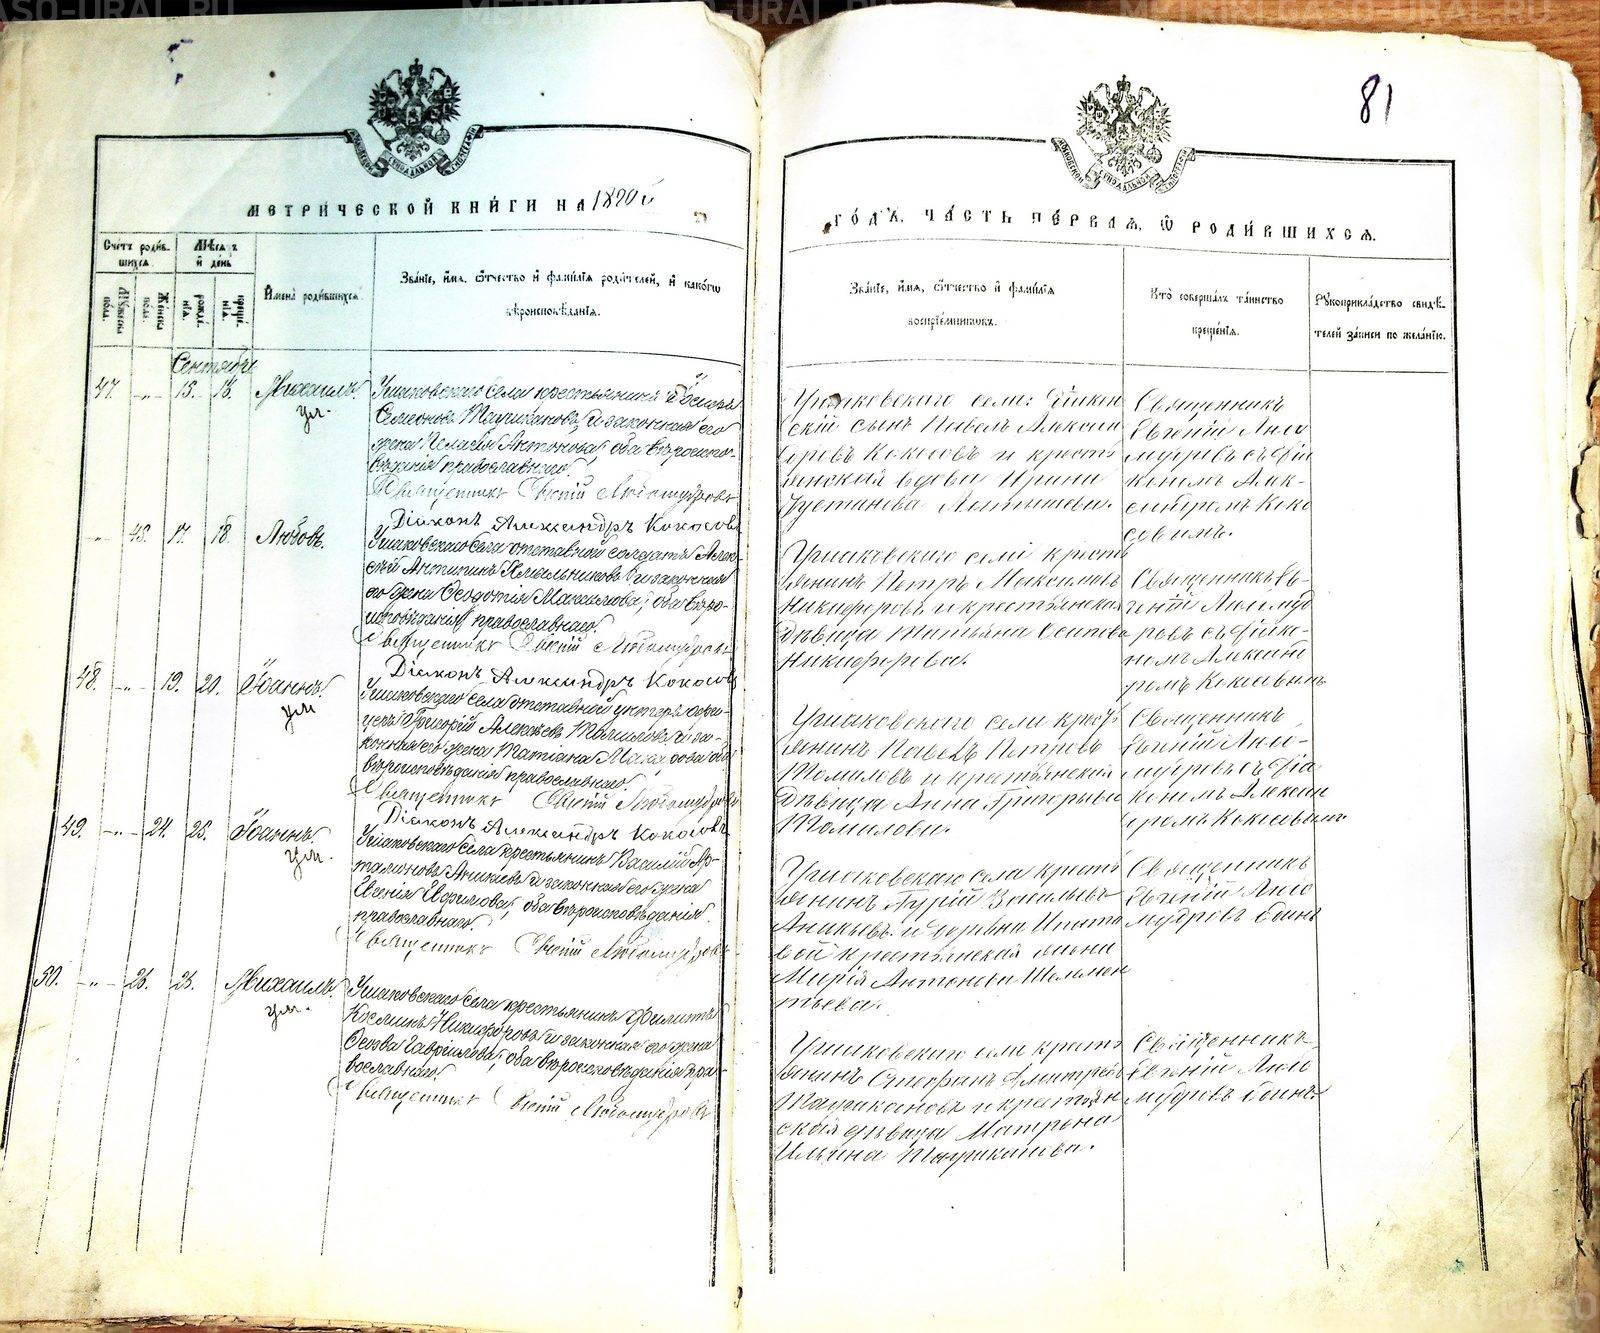 METRIKI.GASO-URAL.RU
81
МЕТРИЧЕСКОЙ КНИГИ НА 1890 й
ГОДЪ, ЧАСТЬ ПЕРВАЯ, Ѿ РОДИВШИХСЯ.
Счетъ родившихся.
Мѣсяцъ и день
Мужеска пола.
Женска пола.
рожденія.
крещенія.
Имена родившихся.
Званіе, имя, отчество и фамилія родителей, и какогѡ
вѣроисповѣданія.
Званіе, имя, отчество и фамилія
воспріемниковъ.
Кто совершалъ таинство
крещенія.
Рукоприкладство свидѣ-
телей записи по желанію.
Сентябрь
47. -„- 15. 18. Михаилъ.
ум.
Ушаковскаго села крестьянинъ
Семеоновъ Таушкановъ, и законная его
жена Антонова, оба вѣроиспо-
вѣданія православнаго.
Священникъ Евгеній Любомудровъ
Діаконъ Александръ Кокосовъ
Ушаковскаго села: Діакон
скій сынъ Павелъ Алексан
дровъ Кокосовъ и кресть
янская вдова Ирина
Священникъ
Евгеній Любо
мудровъ съ Діа
кономъ Алек-
сандромъ Коко
совымъ.
-„- 45. 17. 18. Любовь.
Ушаковскаго села отставной солдатъ Алек-
сѣй Антипинъ и законная
его жена Ѳеодотія оба вѣро-
исповѣданія православнаго.
Священникъ Евгеній Любомудровъ
Діаконъ Александръ Кокосовъ
Ушаковскаго села кресть
янинъ Петръ Максимовъ
Никифоровъ и крестьянская
дѣвица Татьяна Осипова
Никифорова.
Священникъ Ев-
геній Любомуд
ровъ съ Діако-
номъ Александ
ромъ Кокосовымъ
48. -„- 19. 20. Іоаннъ.
ум
Ушаковскаго села отставной унтеръ офи-
церъ Григорій Алексѣевъ Томиловъ, и за-
конная его жена Татіана оба
вѣроисповѣданія православнаго.
Священникъ Евгеній Любомудровъ
Діаконъ Александръ Кокосовъ
Ушаковскаго села кресть
янинъ Павелъ Петровъ
Томиловъ и крестьянская
дѣвица Анна Григорьева
Томилова.
Священникъ
Евгеній Любо-
мудровъ съ Діа
кономъ Алексан
дромъ Кокосовымъ
49. -„- 24. 25. Іоаннъ.
ум.
Ушаковскаго села крестьянинъ Василій Ар-
тамоновъ Аникіевъ и законная его жена
Евгенія Ефимова, оба вѣроисповѣданія
православнаго.
Священникъ Евгеній Любомудровъ
Ушаковскаго села кресть
янинъ Гурій Васильевъ
Аникіевъ и деревни Ипато
вой крестьянская жена
Марія Антонова
Священникъ
Евгеній Любо
мудровъ одинъ
50. -„- 25. Михаилъ.
ум.
Ушаковскаго села крестьянинъ Филиппъ
Косминъ Никифоровъ и законная его жена
Гавріилова, оба вѣроисповѣданія пра-
вославнаго.
Священникъ Евгеній Любомудровъ
Ушаковскаго села кресть
янинъ Стефанъ Дмитріевъ
Таушкановъ и крестьян
ская дѣвица Матрона
Ильина Таушканова.
Священникъ
Евгеній Любо
мудровъ одинъ